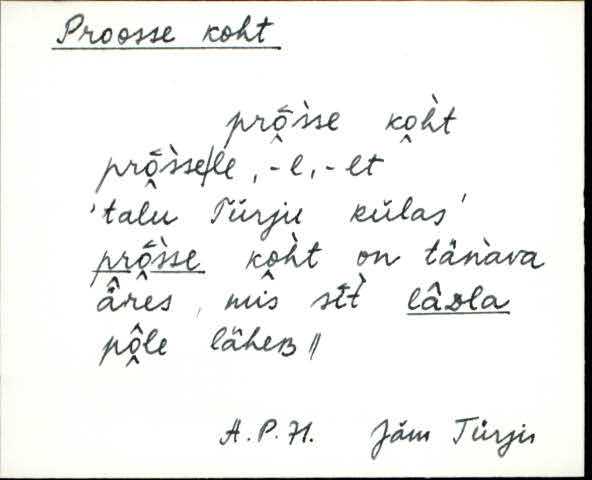 Proosse koht
prò̭̄sse ko̭h̀t
prò̭̄sse|le, -l, -lt
'talu Tǖrju külas'
prò̭̄sse ko̭h̀t on täǹava
ä̂res, mis sīt̀ lâᴅla
pô̭le läheʙ //
A.P. 71. Jäm Türju